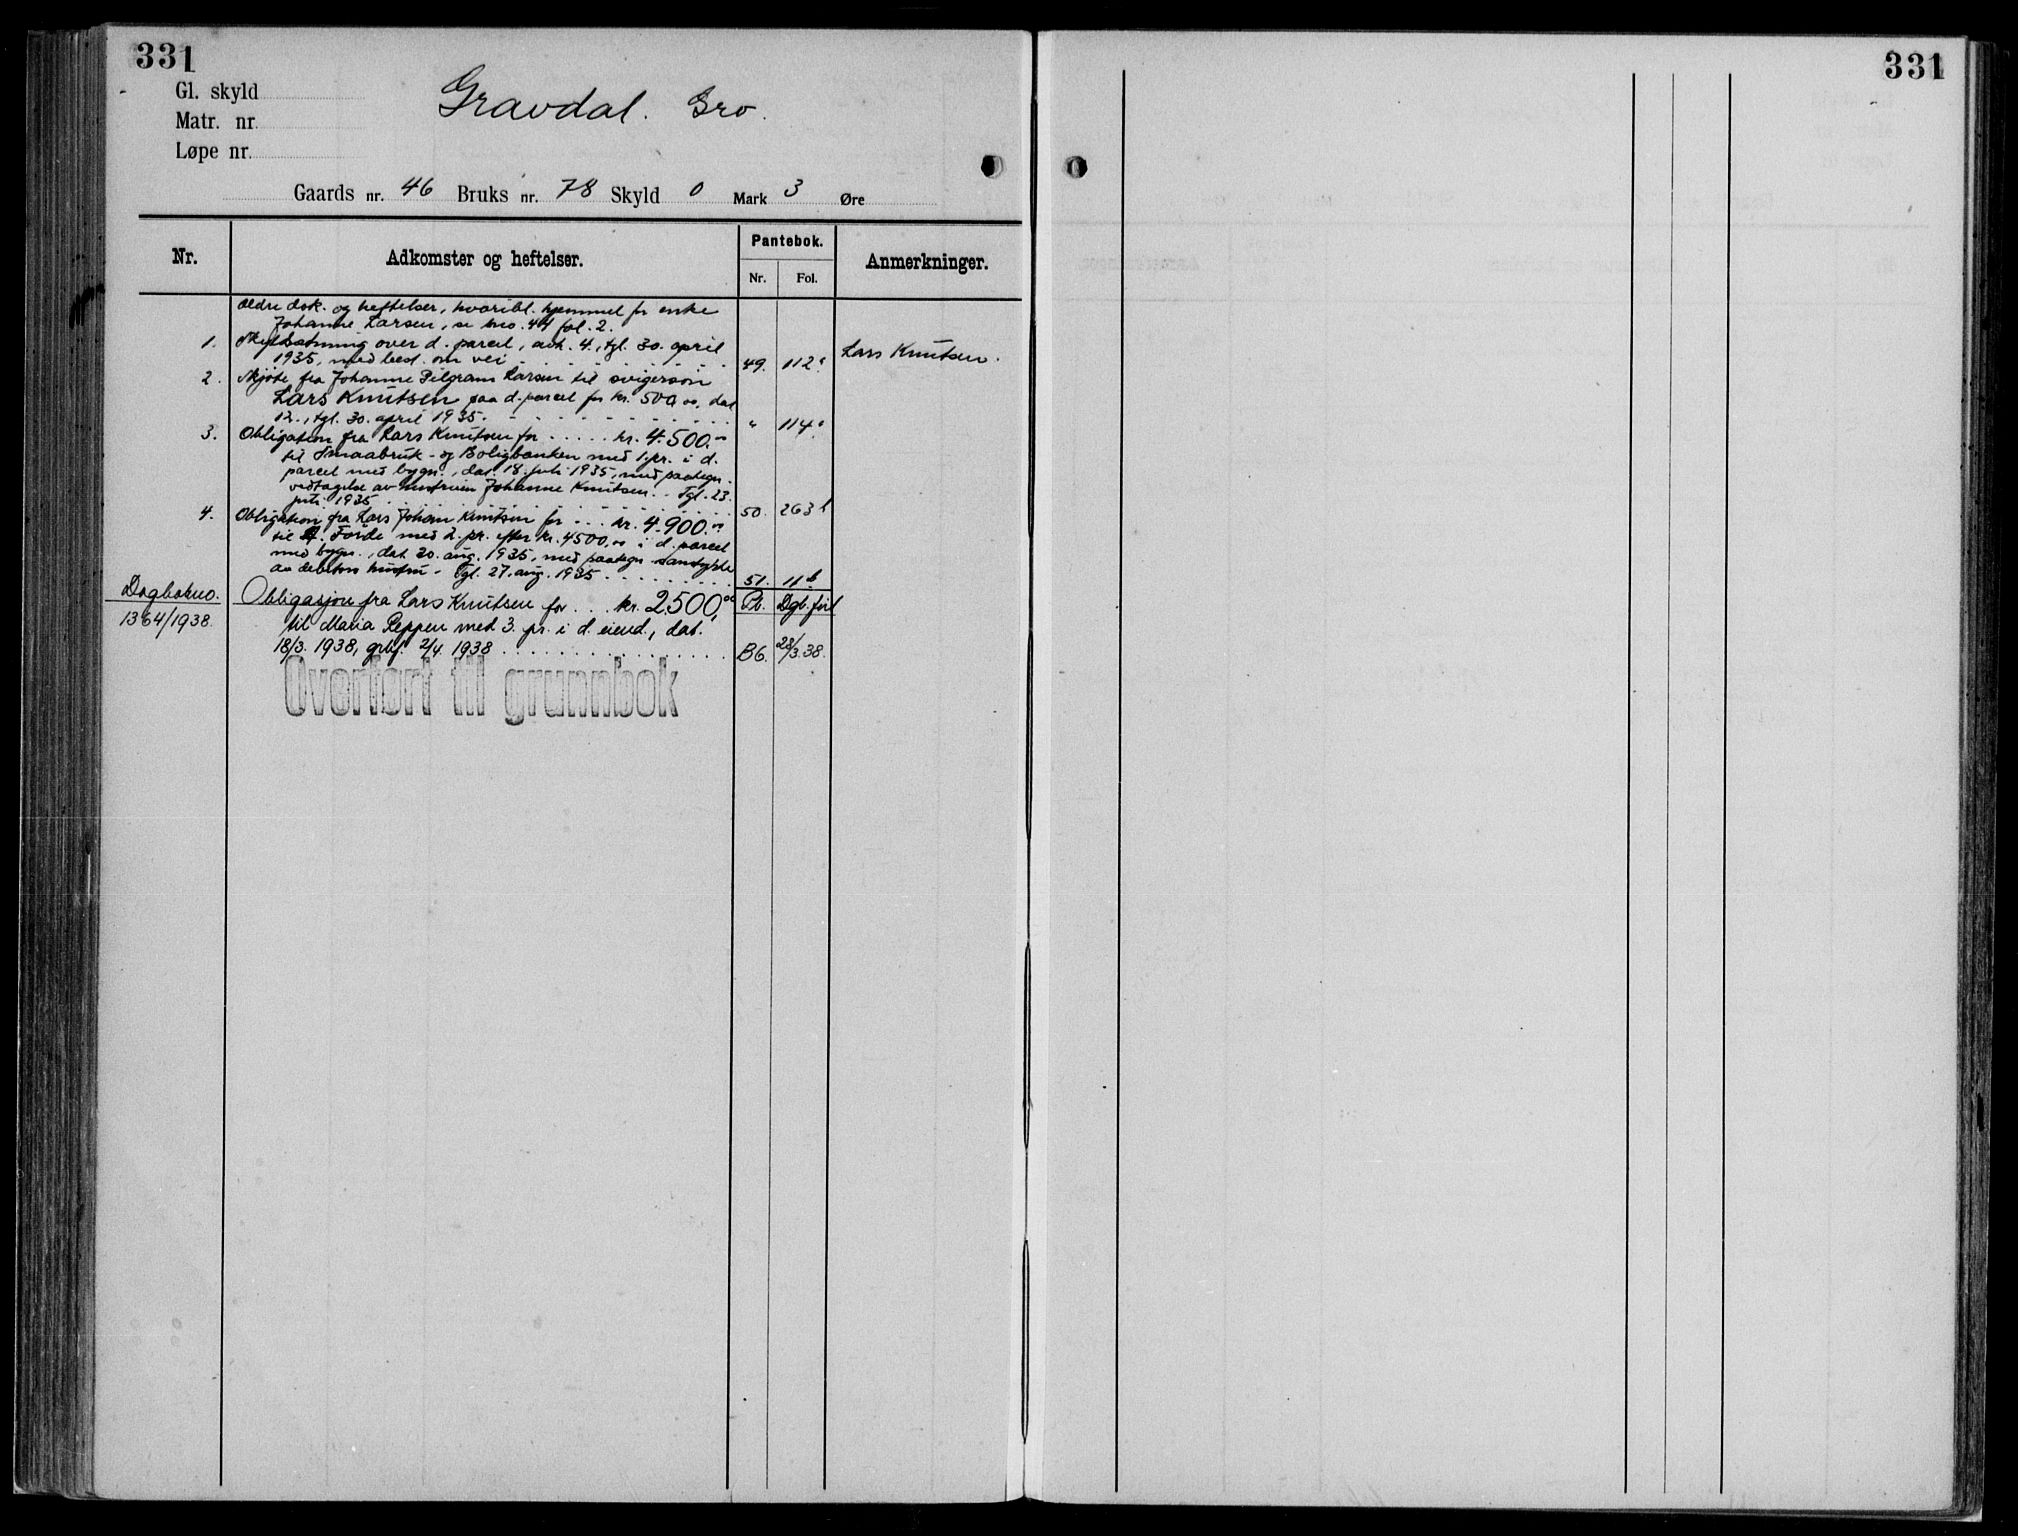 331
Gl. skyld
Matr. nr.
Løpe nr.
Gravdal. Gro.
Gaards nr. 46 Bruks nr. 78 Skyld 0 Mark 3 Øre
Nr. Adkomster og heftelser. Pantebok. Anmerkninger.
Nr. Fol.
Ældre dok. og heftelser, hvoribl. hjemmel for enke
Johanne Larsen, se bno. 44 fol. 2.
1. Skyldsætning over d. parcel, avh. 4., tgl. 30. april
1935, med best. om vei 49. 112a Lars Knutsen.
2. Skjøte fra Johanne Pilgram Larsen til svigersøn
Lars Knutsen paa d. parcel for kr. 500,00, dat.
12., tgl. 30. april 1935. " 114a
3. Obligation fra Lars Knutsen for ..... kr. 4.500.00
til Smaabruk- og Boligbanken med 1. pr. i d.
parcel med bygn., dat. 18. juli 1935, med paategn.
vedtagelse av hustruen Johanne Knutsen. Tgl. 23.
juli 1935 50. 263b
4. Obligation fra Lars Johan Knutsen for ... kr. 4.900.00
til A. Førde med 2. pr. efter kr. 4500,00 i d. parcel
med bygn., dat. 20. aug. 1935, med paategn. samtykke
av debitors hustru. Tgl. 27. aug. 1935 51. 11b
Dagbokno. Obligasjon fra Lars Knutsen for ... kr. 2500,00 Pb. Dgb.ført
1364/1938. til Maria Seppen med 3. pr. i d. eiend., dat.
18/3. 1938, grbf. 2/4. 1938 B6. 23/3.38.
Overført til grunnbok
331